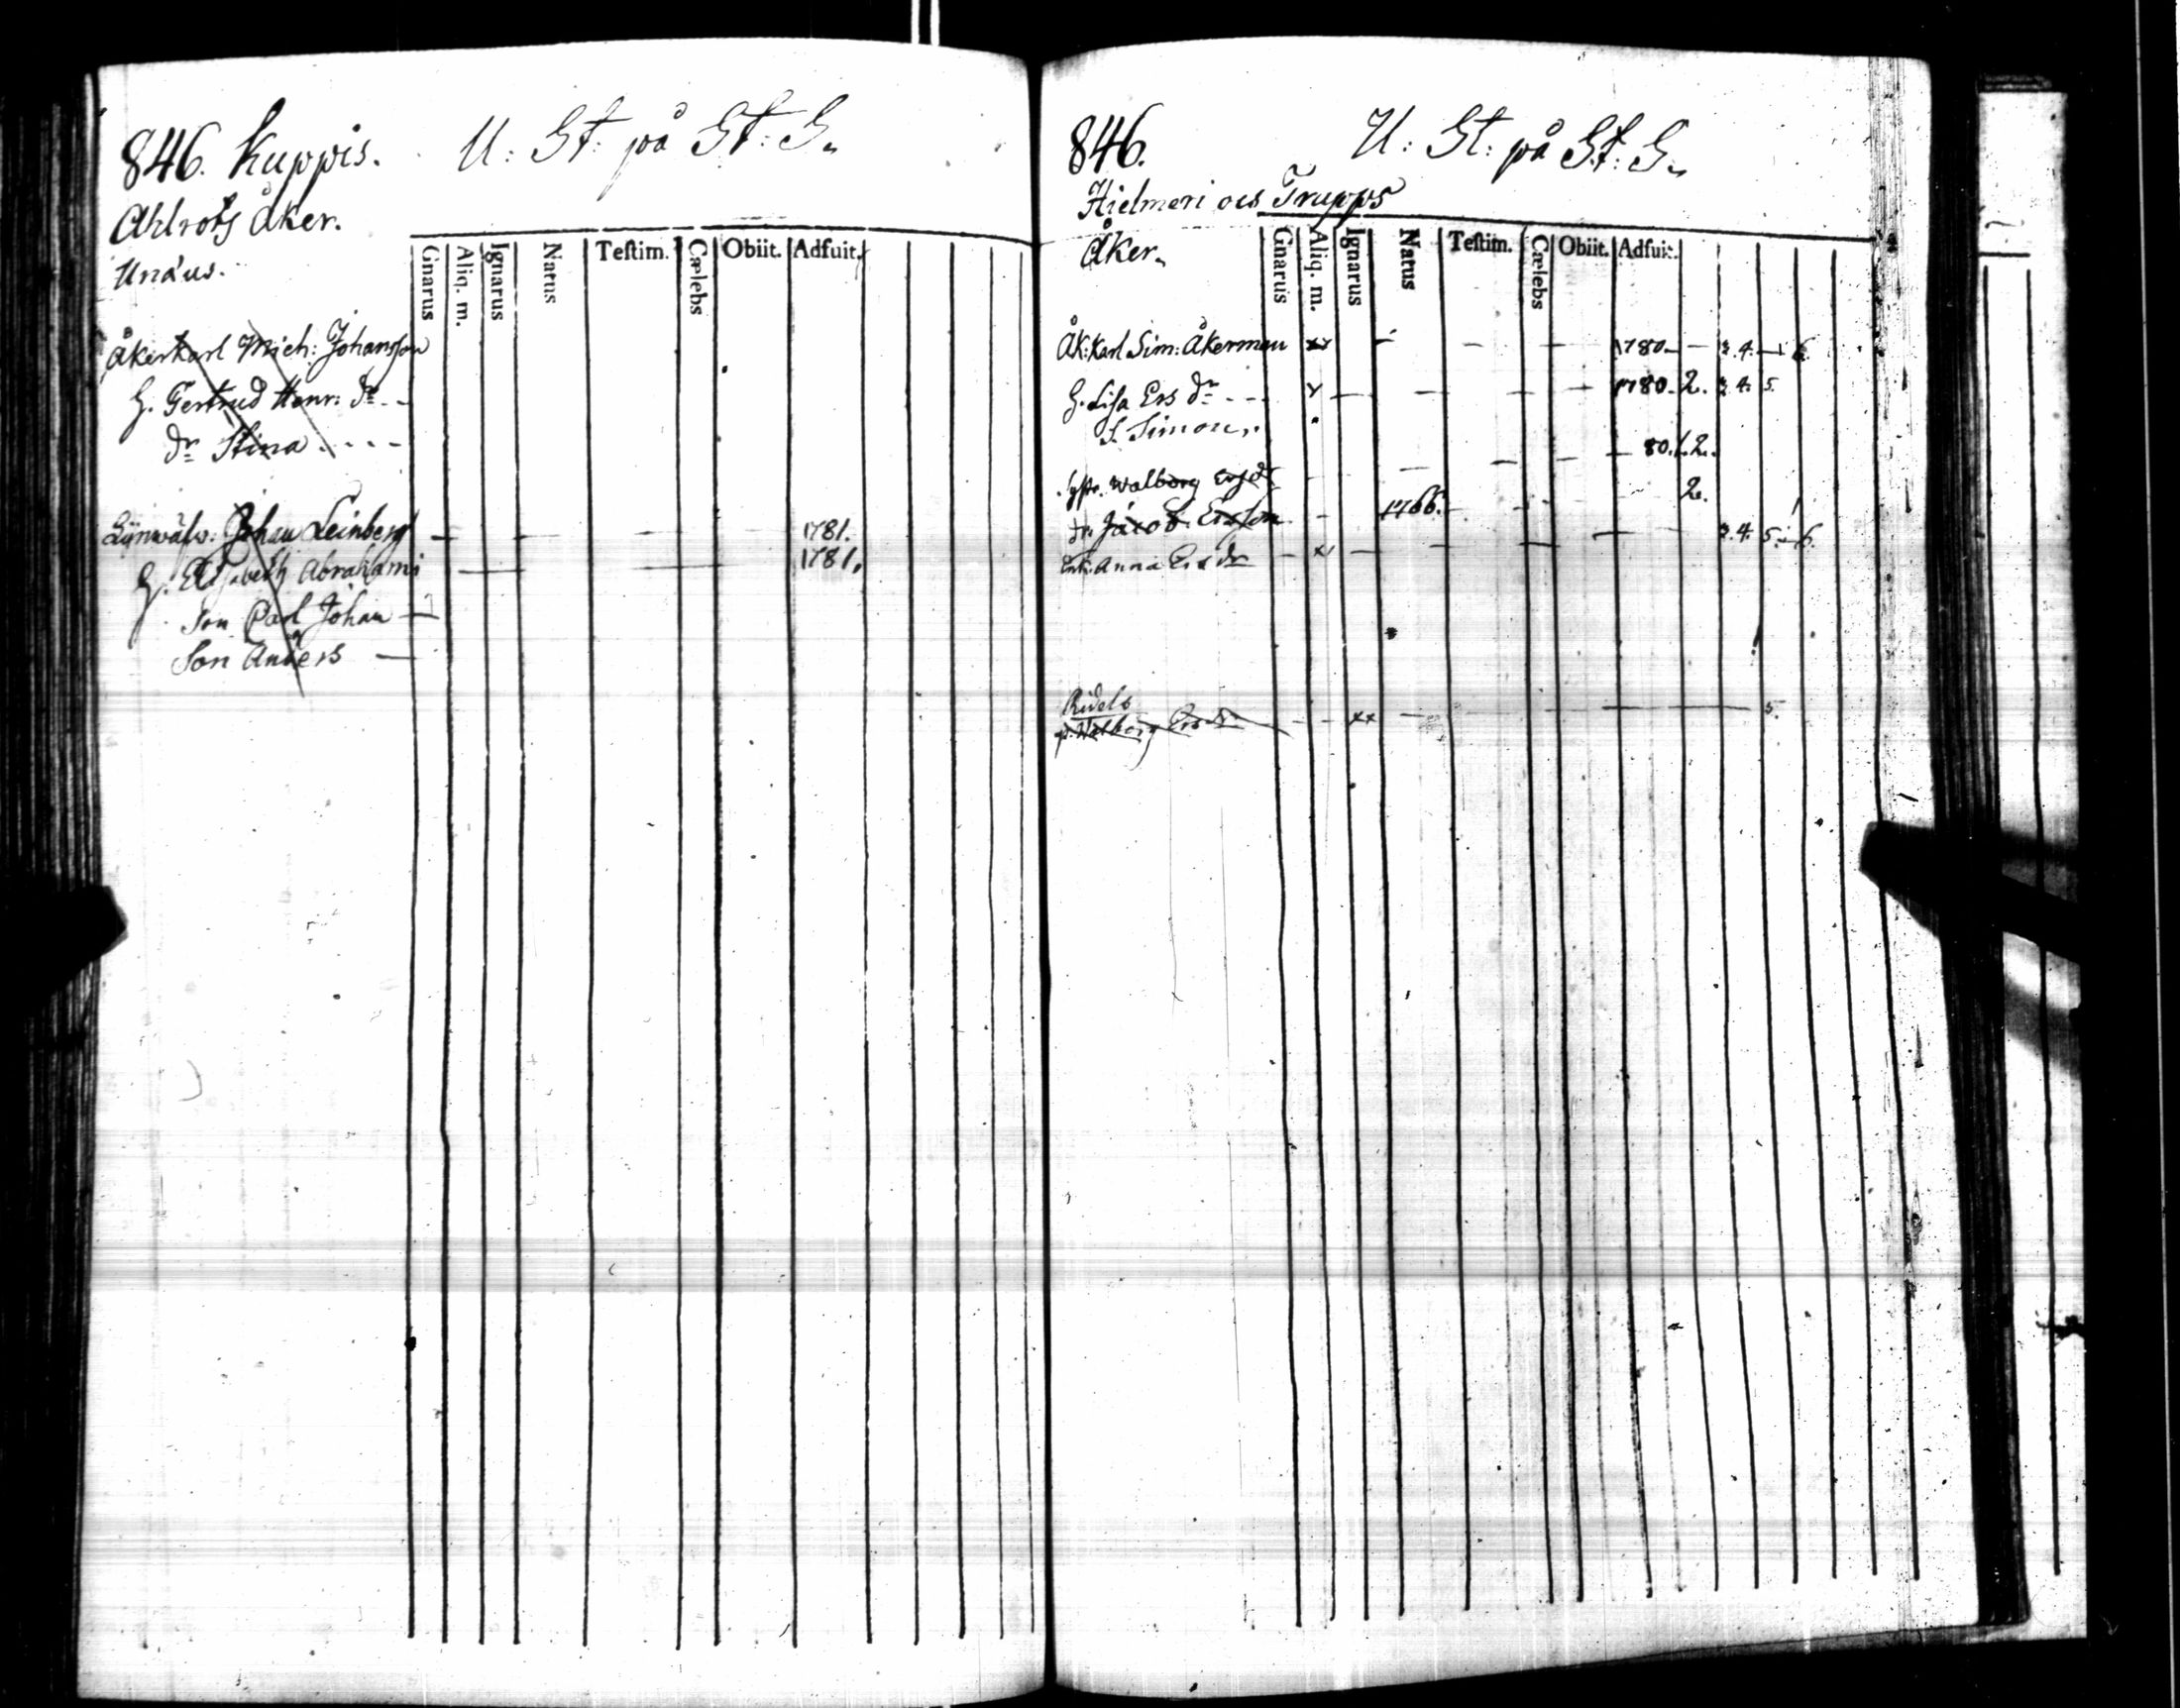 846. Kuppis. U: St: på St: G.
Ahlrots Åker.
Gnarus Aliq. m. Ignarus Natus Teſtim. Cælebs Obiit. Adfuit.
Åkerkarl Mich: Johansson
H. Gertrud Henr: dr
dr Stina
Johan Leinberg 1781.
H. Elisabeth Abrahams 1781.
Son Carl Johan
Son Anders
846. U: St: på St: G.
Hielmeri ocs Trapps
Åker.
Gnarus Aliq. m. Ignarus Natus Teſtim. Cælebs Obiit. Adfuit.
Åk: Karl Sim: Åkerman xx 1780 3. 4. 6.
H. Lisa Ers dr 1780. 2. 3. 4. 5.
S. Simon
80. 1. 2.
Walborg Ersdr 2.
dr. Jacob Ersson 1766.
Enk. Anna Ers dr 3. 4. 5. 6.
Walborg Ers dr xx 5.